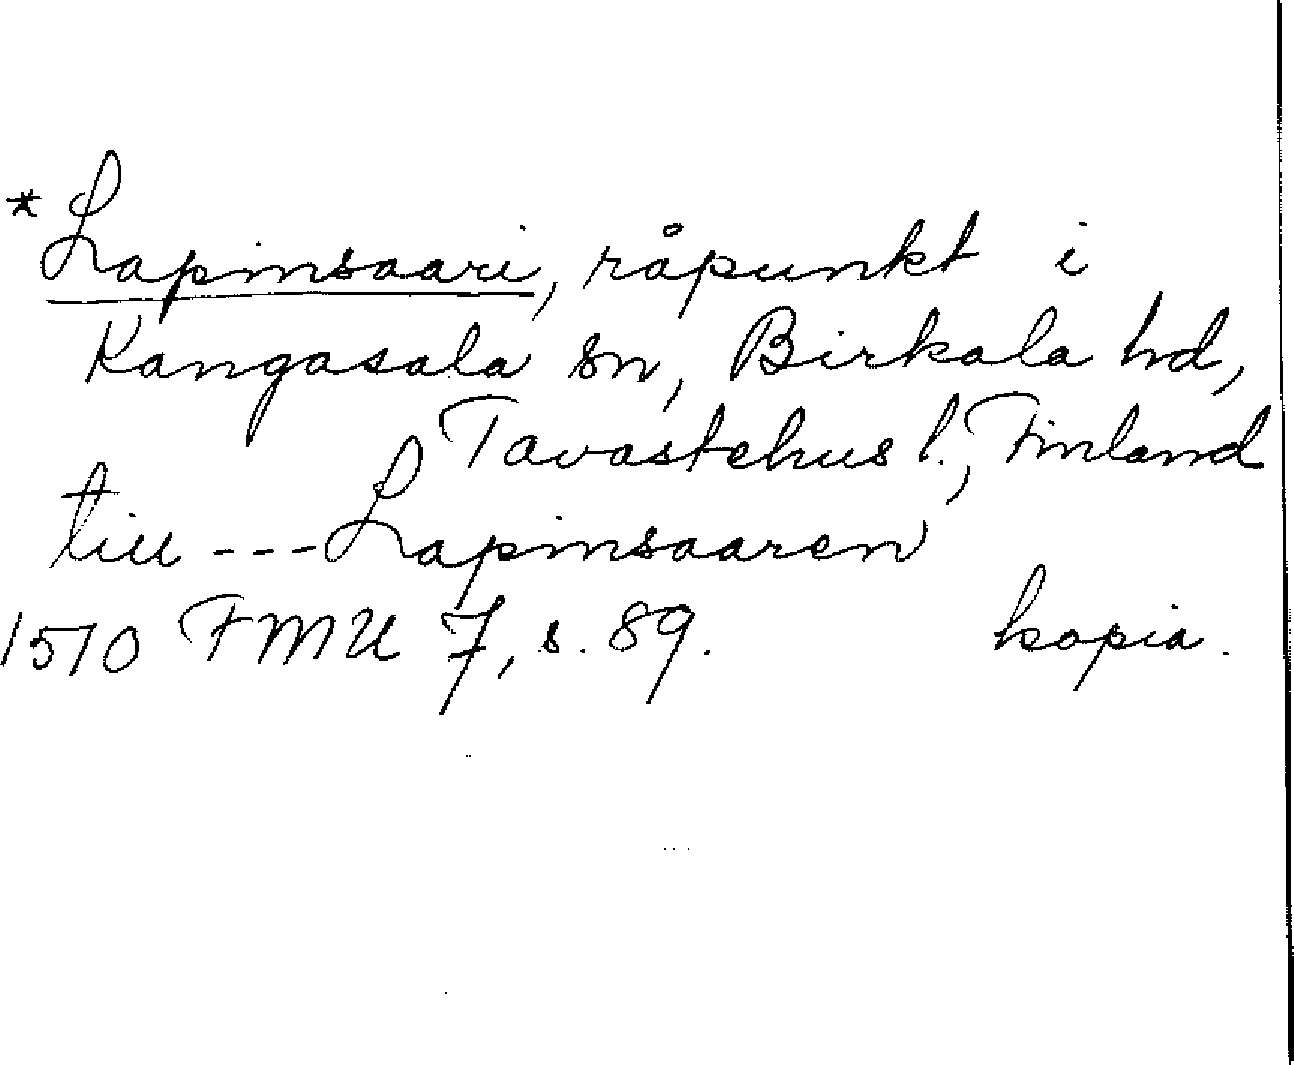 *Lapinsaari, råpunkt i
Kangasala sn, Birkala hd,
Tavastehus l., Finland
till ---Lapinsaaren
1510 FMU 7, s. 89. kopia.